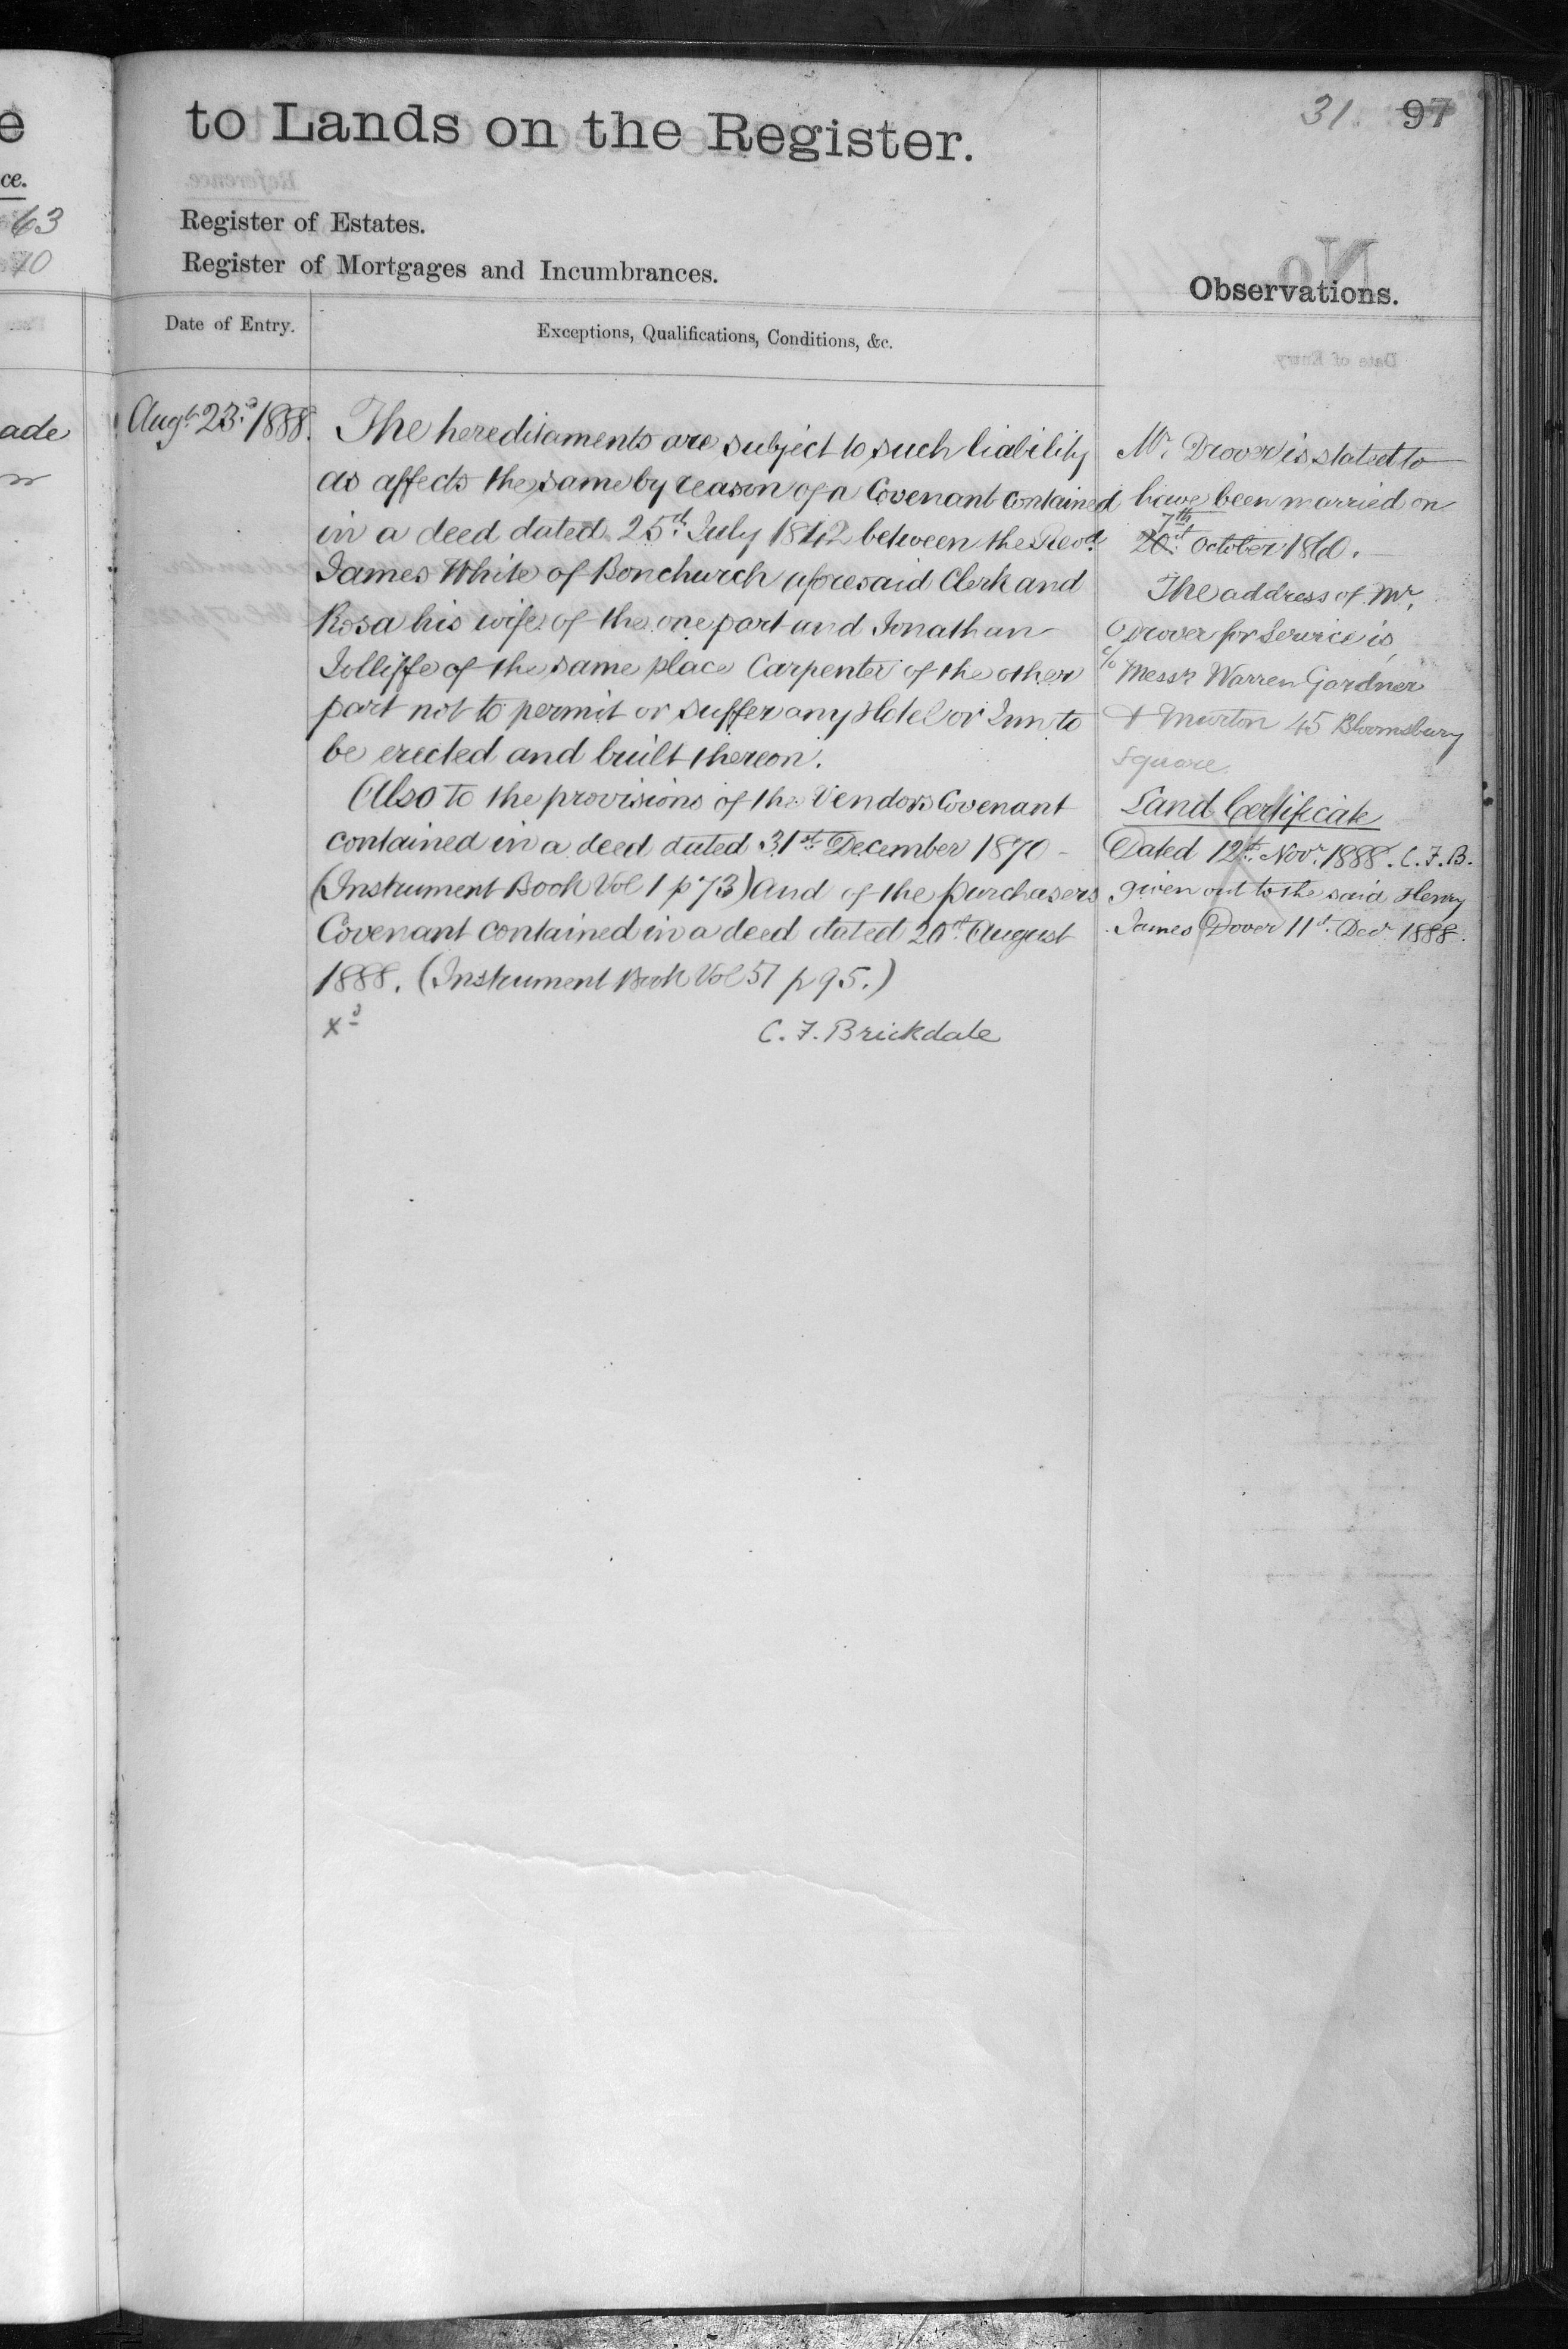 e
ce.
63
70
ade
31. 97
to Lands on the Register.
Register of Estates.
Register of Mortgages and Incumbrances.
Observations.
Date of Entry.
Exceptions, Qualifications, Conditions, &c.
Augt 23d 1888.
The hereditaments are subject to such liability
as affects the same by reason of a Covenant contained
in a deed dated 25th July 1842 between the Revd
James White of Bonchurch aforesaid Clerk and
Rosa his wife of the one part and Jonathan
Jolliffe of the same place Carpenter of the other
part not to permit or suffer any Hotel or Inn to
be erected and built thereon.
Also to the provisions of the Vendors Covenant
contained in a deed dated 31st December 1870 -
(Instrument Book Vol 1 p 73) and of the purchasers
Covenant contained in a deed dated 20th August
1888. (Instrument Book Vol 51 p 95.)
xd
C. F. Brickdale
Mr. Drover is stated to
have been married on
7th
20th October 1860.
The address of Mr.
Drover for Service is
c/o Messrs Warren Gardner
& Murton 45 Bloomsbury
Square
Land Certificate
Dated 12th Novr. 1888. C. F. B.
given out to the said Henry
James Dover 11th Decr 1888.